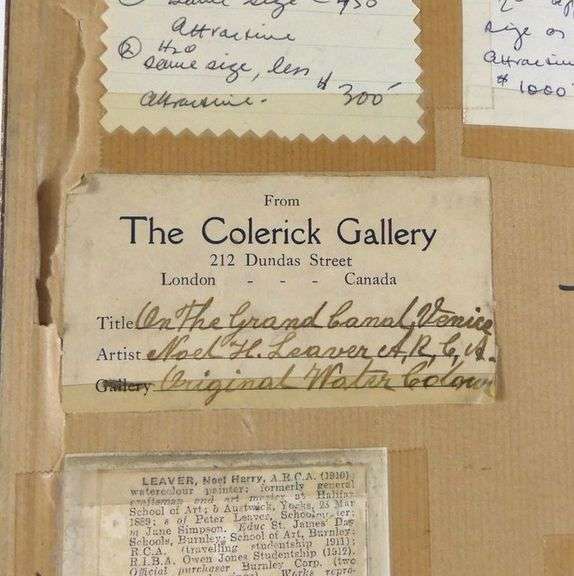 ② H20
same size, less
attractive. $ 300
attractive
size or
attractive
$ 1000
From
The Colerick Gallery
212 Dundas Street
London - - - Canada
Title On The Grand Canal, Venice
Artist Noel H. Leaver A, R, C, A.
Gallery Original Water Colour
LEAVER, Noel Harry, A.R.C.A. (1910);
watercolour painter; formerly general
craftsman and art master at Halifax
School of Art; b Austwick, Yorks, 23 Mar
1889; s of Peter Leaver, Schoolmaster;
m June Simpson. Educ St. James' Day
Schools, Burnley; School of Art, Burnley;
R.C.A. (travelling studentship 1911);
R.I.B.A. Owen Jones Studentship (1912).
Official purchaser Burnley Corp. (two
Works repro-